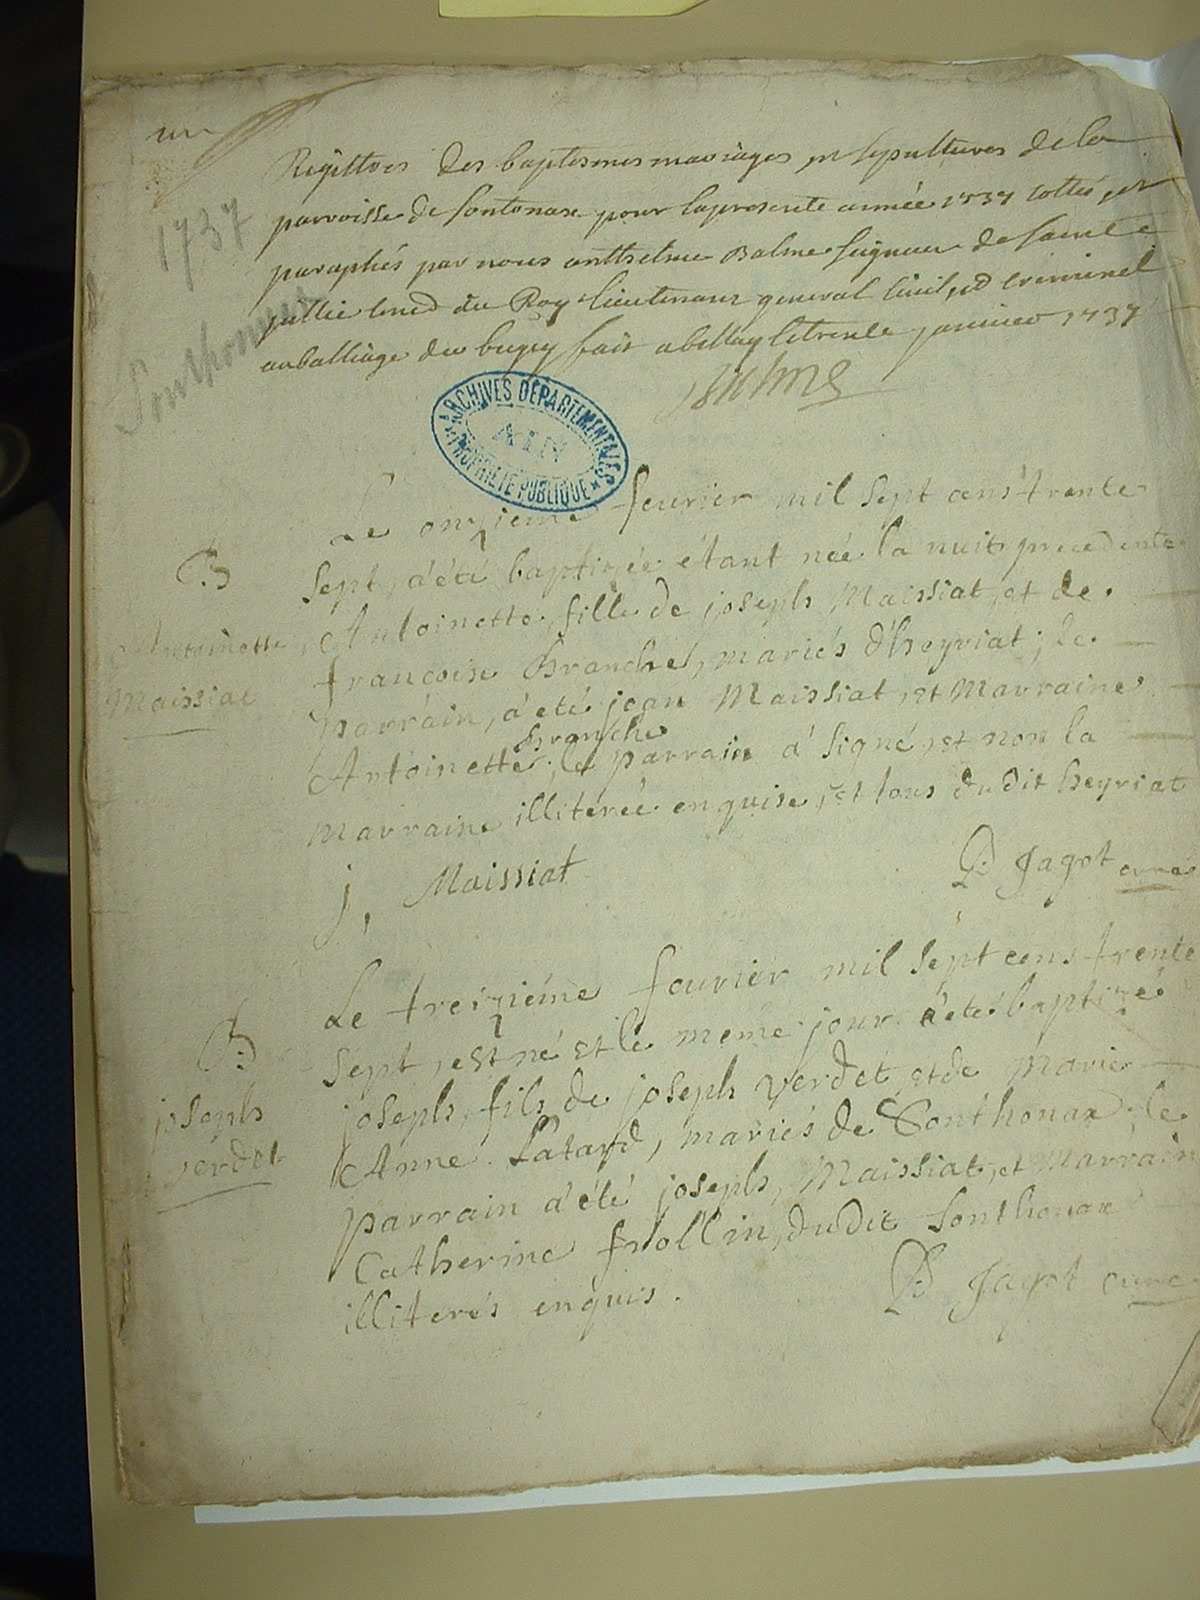 un
1737
Sonthonnax
Regittres des baptesmes mariages et sepultures de la
parroisse de sontonax pour la presente année 1737 cottés et
paraphés par nous anthelme Balme seigneur de sainte
jullie conser du Roy lieutenant general civil et criminel
au balliage du bugey fait a bellay le trente janvier 1737
Balme
ARCHIVES DÉPARTEMENTALES
AIN
PROPRIÉTÉ PUBLIQUE
B
Antoinette
Maissiat
Le onzieme feurier mil sept cens trente
sept, a'été baptizée étant née la nuit precedente
Antoinette, fille de joseph Maissiat, et de
francoise Branche, mariés d'heyriat; le
parrain, a'été jean Maissiat, et Marraine
Branche
Antoinette; le parrain a' signé, et non la
Marraine illiterée enquise, et tous dudit heyriat
j, Maissiat
B: Jagot curé
B
joseph
verdet
Le treizième feurier mil sept cens trente
sept, est né et le meme jour a'eté baptizé
joseph, fils de joseph verdet, et de Marie
Anne Patard, mariés de Sonthonax; le
parrain a'été joseph, Maissiat, et Marrain
Catherine frollin, dudit sonthonax
illiterés enquis.
B: Jagot curé